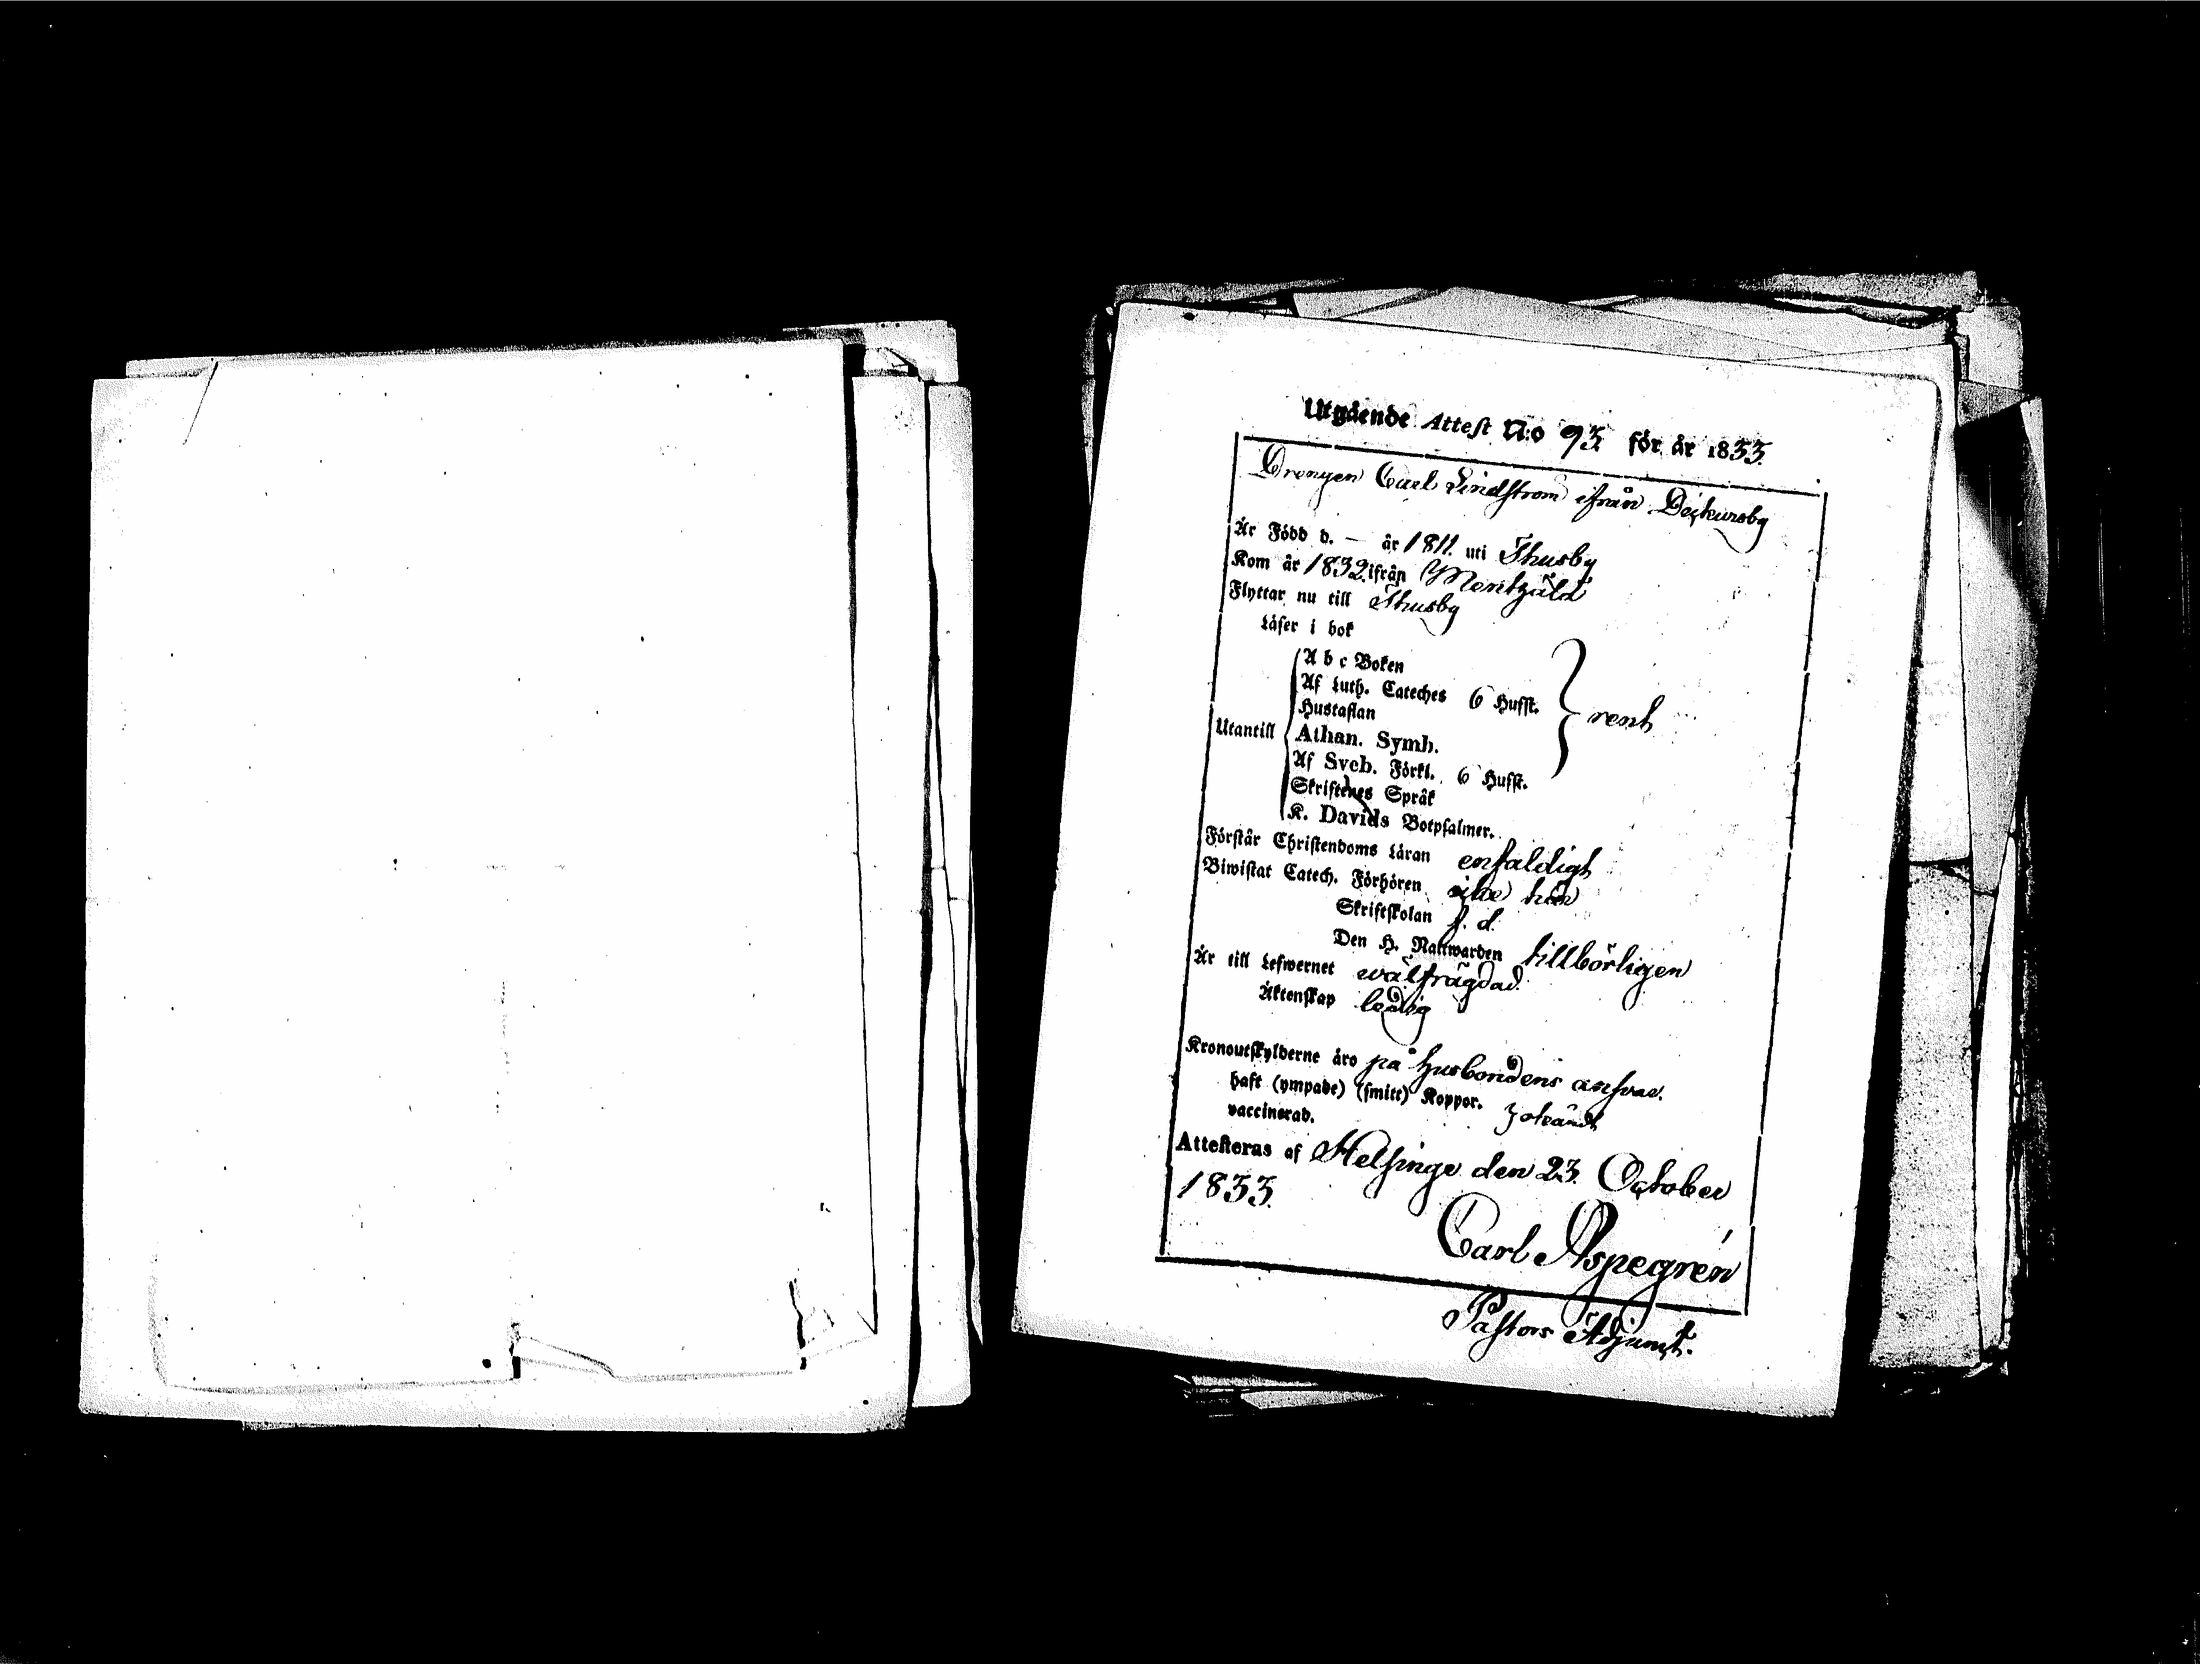 Utgående Attest N:o 93 för år 1833.
Drengen Carl Lindström ifrån Dejkursby
Är Född d. — år 1811. uti Thusby
Kom år 1832. ifrån Mentzälä
Flyttar nu till Thusby
Läser i bok
A b c Boken
Af Luth. Cateches 6 Hufst.
Hustaflan
renh
Utantill
Athan. Symb.
Af Sveb. Förkl. 6 Hufst.
Skriftenes Språk
K. Davids Botpsalmer.
Förstår Christendoms Läran enfaldigt
Biwistat Catech. Förhören icke här
Skriftskolan s. d.
Den H. Nattwarden tillbörligen
Är till Lefwernet wälfrägdad.
Äktenskap ledig
Kronoutskylderne äro på husbondens answar.
haft (ympade) (smitt) Koppor. okändt
vaccinerad.
Attesteras af Helsinge den 23. October
1833.
Carl Aspegrén
Pastors Adjunct.